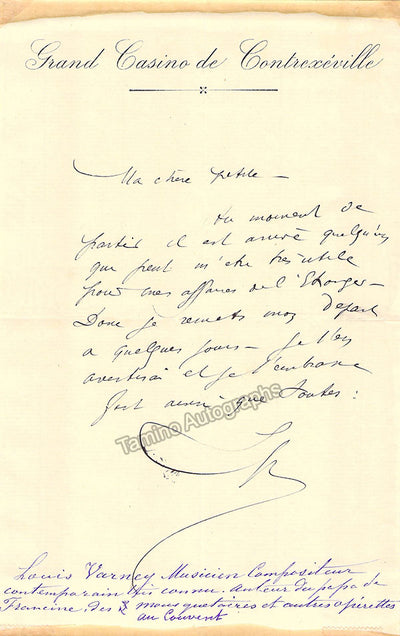 Grand Casino de Contrexéville
Ma chère petite —
Au moment de
partir il est arrivé quelqu'un
qui peut m'être très utile
pour mes affaires de l'Etranger —
Donc je remets mon départ
a quelques jours — je t'en
avertirai et je t'embrasse
fort ainsi que toutes :
Tamino Autographs
Louis Varney Musicien Compositeur
contemporain très connu. auteur du papa de
Francine, des 3 mousquetaires et autres opérettes
au Couvent